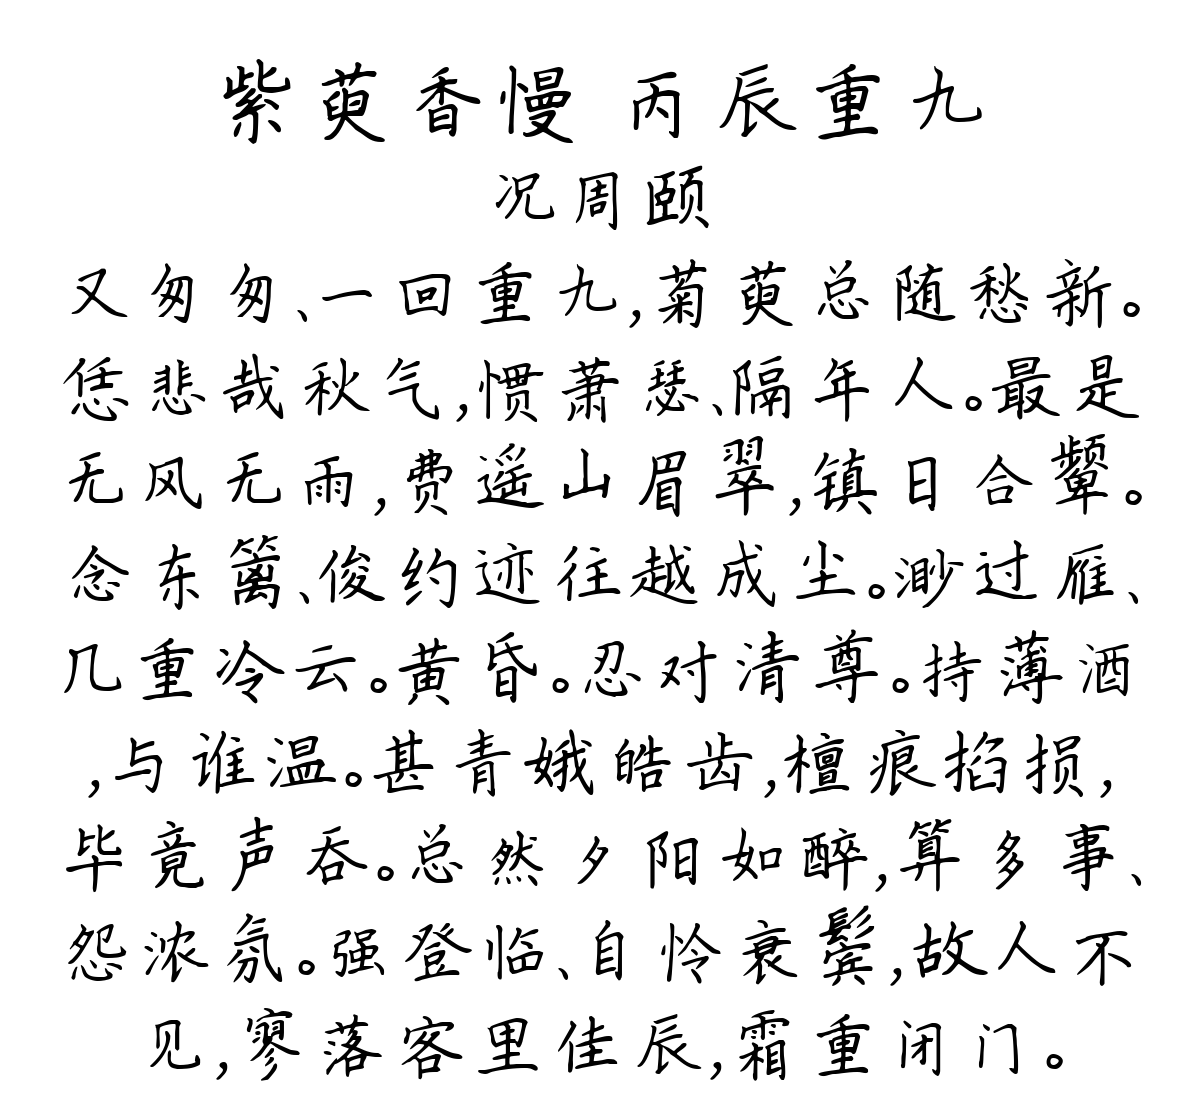 紫萸香慢 丙辰重九
况周颐
又匆匆、一回重九,菊萸总随愁新。
恁悲哉秋气,惯萧瑟、隔年人。最是
无风无雨,费遥山眉翠,镇日合颦。
念东篱、俊约迹往越成尘。渺过雁、
几重冷云。黄昏。忍对清尊。持薄酒
,与谁温。甚青娥皓齿,檀痕掐损,
毕竟声吞。总然夕阳如醉,算多事、
怨浓氛。强登临、自怜衰鬓,故人不
见,寥落客里佳辰,霜重闭门。